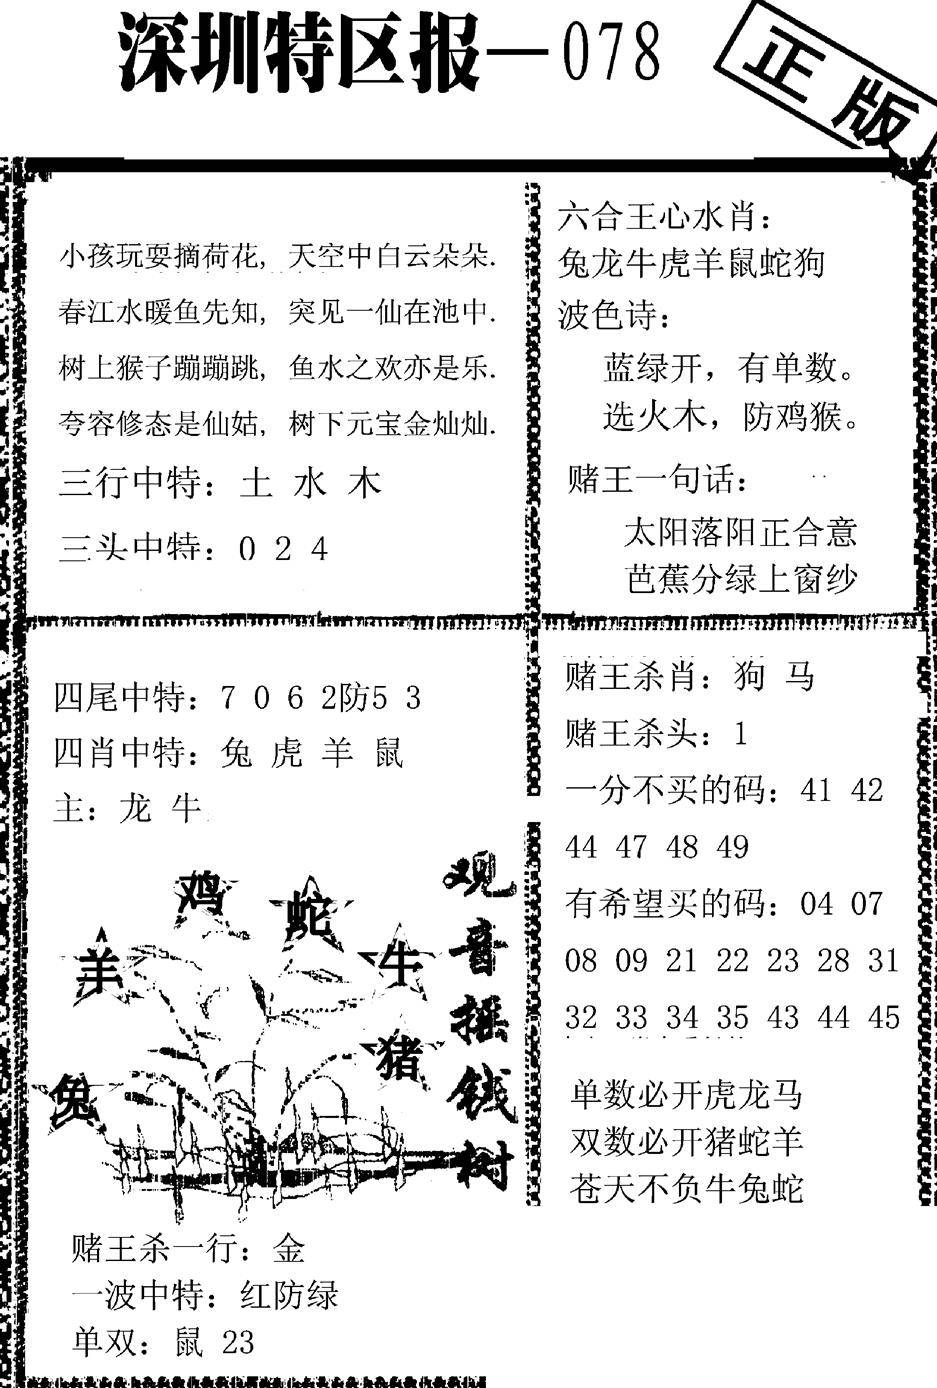 深圳特区报—078
正版
小孩玩耍摘荷花，天空中白云朵朵.
春江水暖鱼先知，突见一仙在池中.
树上猴子蹦蹦跳，鱼水之欢亦是乐.
夸容修态是仙姑，树下元宝金灿灿.
三行中特：土 水 木
三头中特：0 2 4
六合王心水肖：
兔龙牛虎羊鼠蛇狗
波色诗：
蓝绿开，有单数。
选火木，防鸡猴。
赌王一句话：
太阳落阳正合意
芭蕉分绿上窗纱
四尾中特：7 0 6 2防5 3
四肖中特：兔 虎 羊 鼠
主：龙 牛
鸡
蛇
羊
牛
猪
兔
观音摇钱树
赌王杀一行：金
一波中特：红防绿
单双：鼠 23
赌王杀肖：狗 马
赌王杀头：1
一分不买的码：41 42
44 47 48 49
有希望买的码：04 07
08 09 21 22 23 28 31
32 33 34 35 43 44 45
单数必开虎龙马
双数必开猪蛇羊
苍天不负牛兔蛇